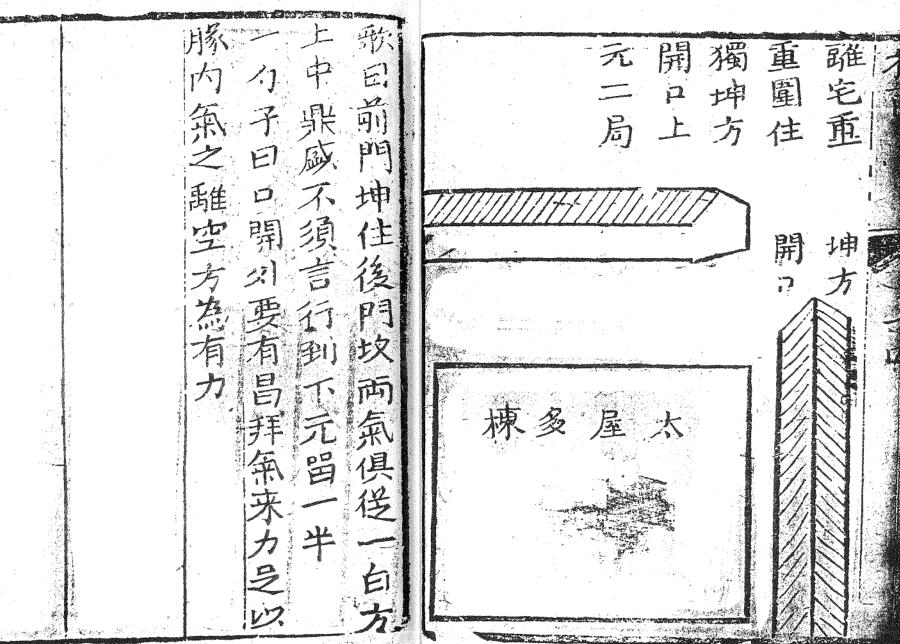 離宅重
重圍住
獨坤方
開口上
元二局
坤方
開口
太屋多棟
歌曰前門坤住後門坎兩氣俱從一白方
上中鼎盛不須言行到下元留一半
一勺子曰口開外要有昌拜氣来力足以
勝内氣之離空方為有力